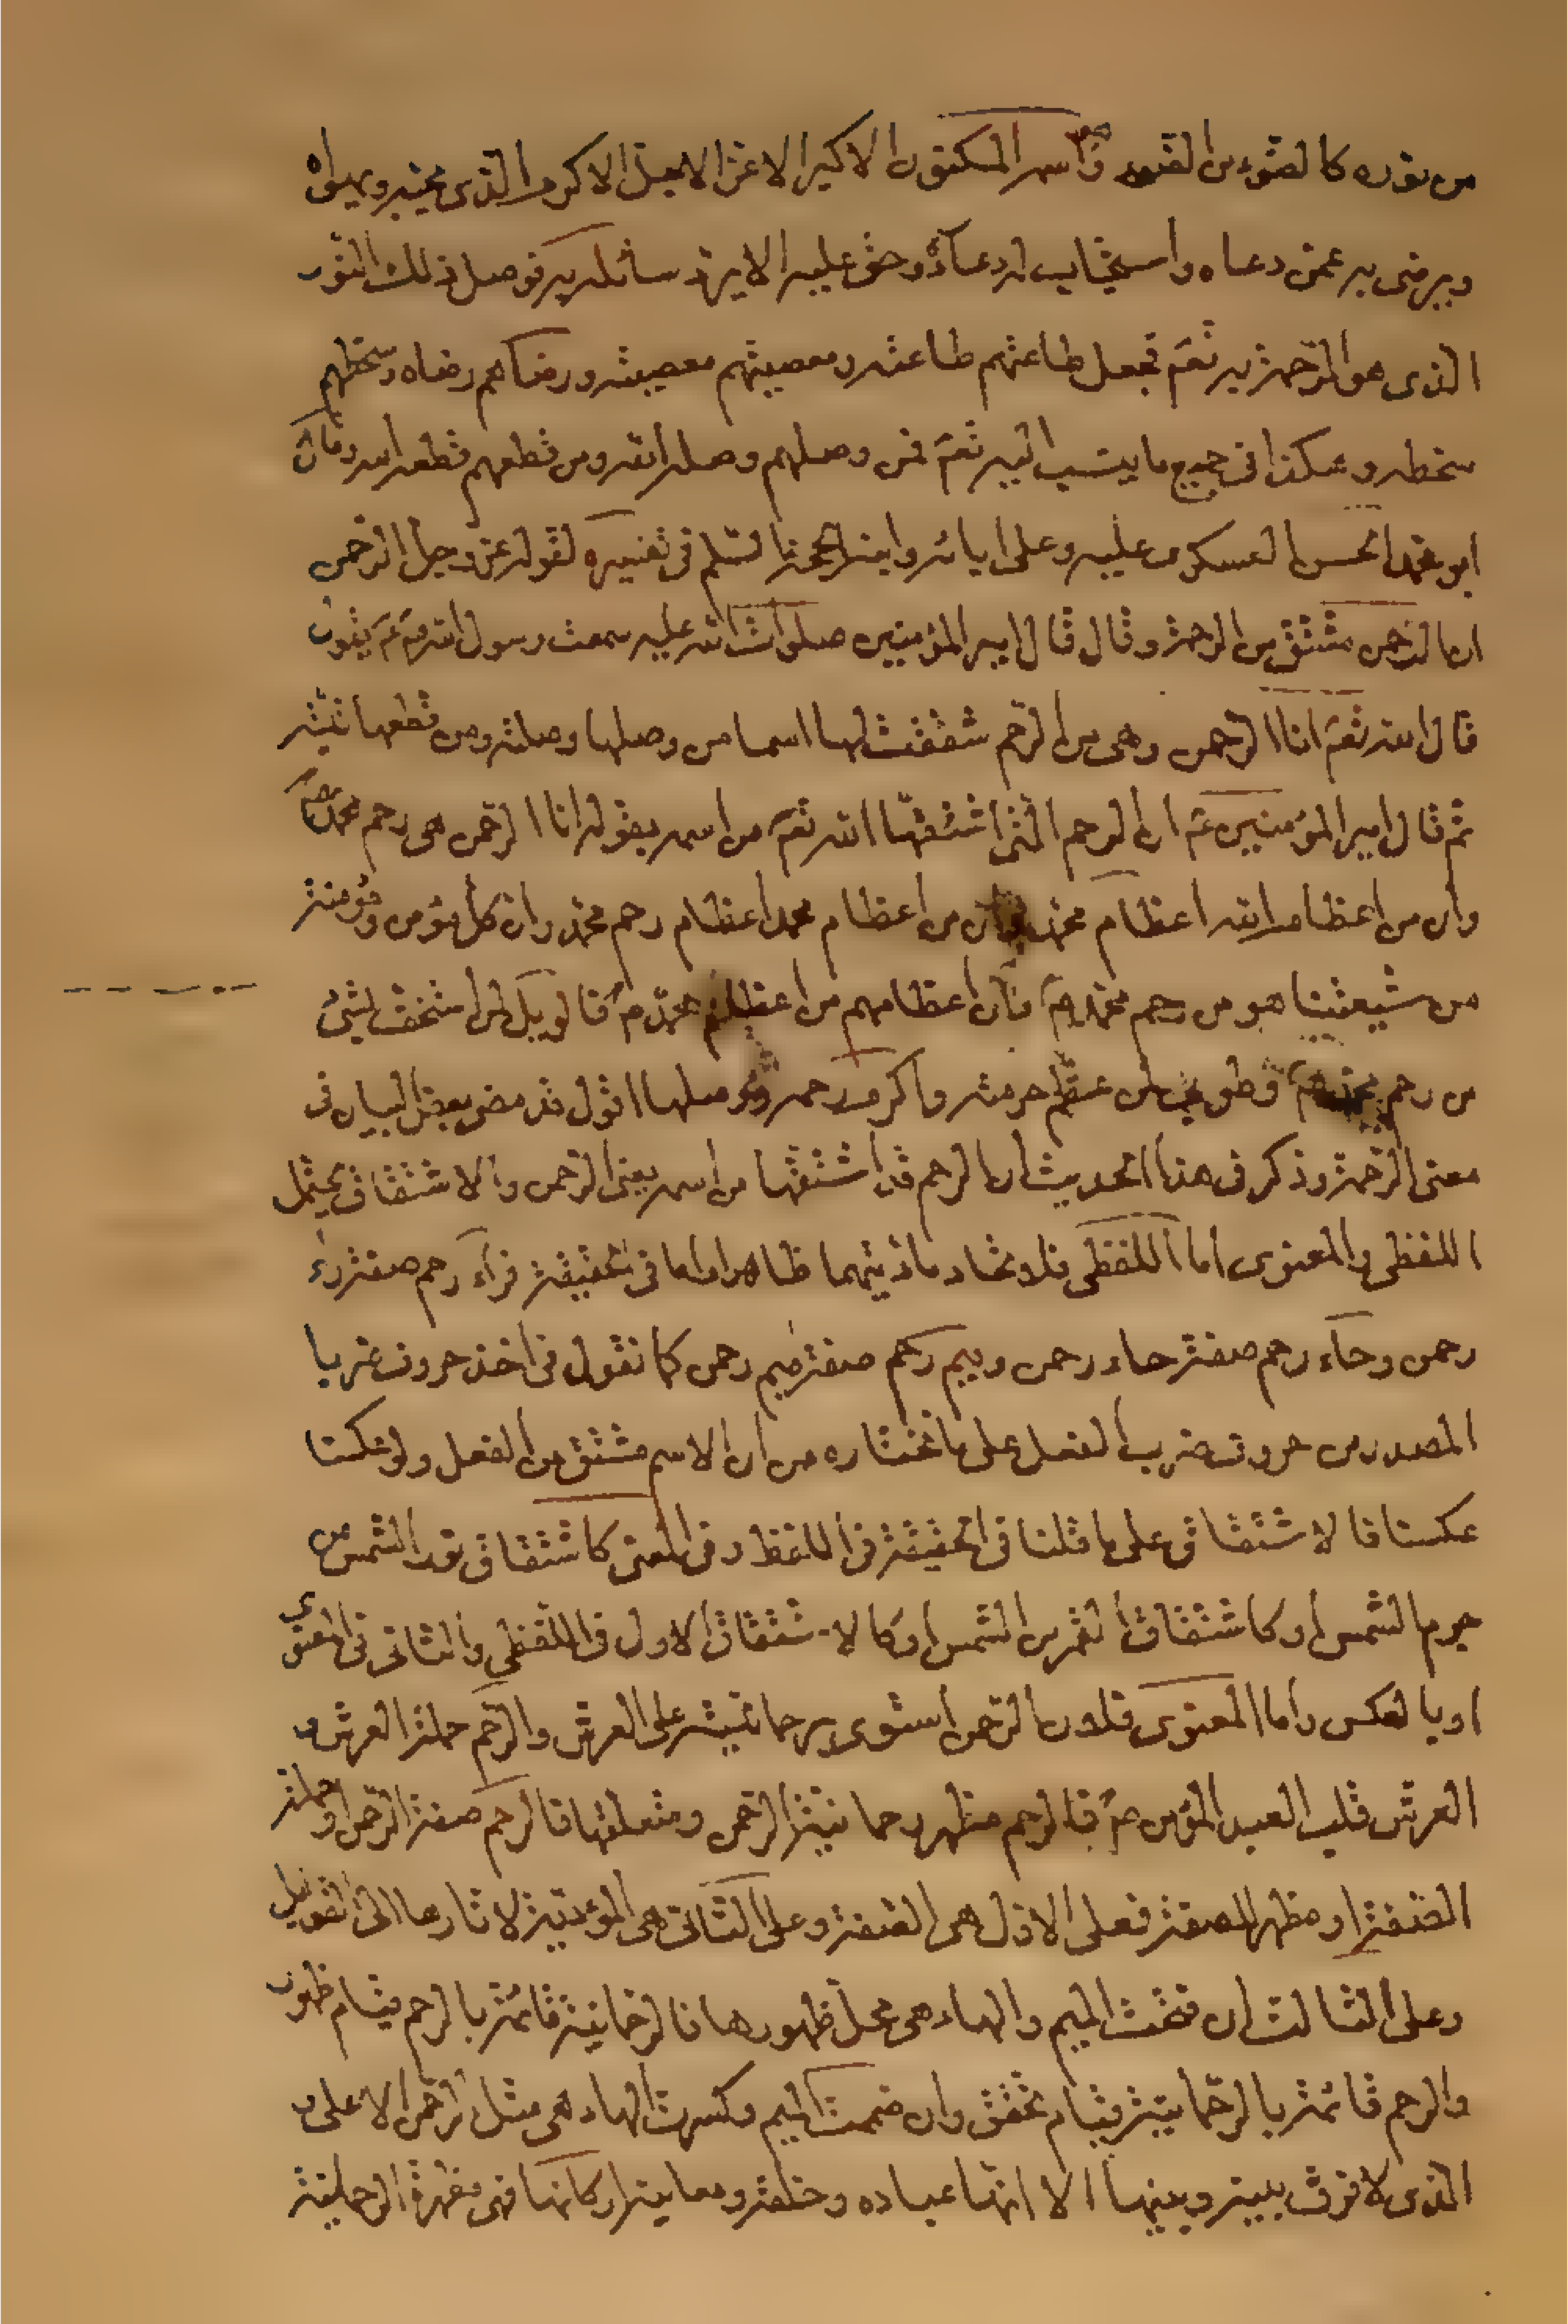 من نوره كالضوء من الضوء واسمه المكنون الاكبر الاعز الاجل الاكرم الذي يحبه ويهواه
ويرضى به عمن دعاه واستجاب له دعاؤه وحق عليه الا يرد سائله به فوصل ذلك النور
الذي هو الرحمة به تعم فجعل طاعتهم طاعته ومعصيتهم معصيته ورضاهم رضاه وسخطهم
سخطه وهكذا في جميع ما ينسب اليه تعم فمن وصلهم وصله الله ومن قطعهم قطعه الله وقال
ابو محمد الحسن العسكري عليه وعلى ابائه وابنه الحجة السلم في تفسيره لقوله عز وجل الرحمن
ان الرحمن مشتق من الرحمة وقال قال امير المؤمنين صلوات الله عليه سمعت رسول الله ص يقول
قال الله تعم انا الرحمن وهي من الرحم شققت لها اسما من وصلها وصلته ومن قطعها بتته
ثم قال امير المؤمنين ع ان الرحم التي اشتقها الله تعم من اسمه بقوله انا الرحمن هي رحم محمد ص
وان من اعظام الله اعظام محمد وان من اعظام محمد اعظام رحم محمد وان كل مؤمن ومؤمنة
من شيعتنا هو من رحم محمد ص وان اعظامهم من اعظام محمد ص فالويل لمن استخف بشئ
من رحم محمد ص وطوبى لمن عظم حرمته واكرم رحمه ووصلها اقول قد مضى بعض البيان في
معنى الرحمة وذكر في هذا الحديث ان الرحم قد اشتقها من اسمه يعني الرحمن والاشتقاق يحتمل
اللفظي والمعنوي اما اللفظي فلاتحاد مادتيهما ظاهرا واما في الحقيقة فراء رحم صفة راء
رحمن وحاء رحم صفة حاء رحمن وميم رحم صفة ميم رحمن كما نقول في اخذ حروف ضربا
المصدر من حروف ضرب الفعل على ما نختاره من ان الاسم مشتق من الفعل ولو عكسنا
عكسنا فالاشتقاق على ما قلنا في الحقيقة في اللفظ وفي المعنى كاشتقاق نور الشمس من
جرم الشمس او كاشتقاق القمر من الشمس او كالاشتقاق الاول في اللفظي والثاني في المعنوي
او بالعكس واما المعنوي فلان الرحمن استوى برحمانيته على العرش والرحم حملة العرش و
العرش قلب العبد المؤمن ص فالرحم مظهر رحمانية الرحمن ومتعلقها فالرحم صفة الرحمن او حملة
الصفة او مظهر الصفة فعلى الاول هي الصفة وعلى الثاني هي المؤدية لاثارها الى القوابل
وعلى الثالث ان فتحت الميم والهاء هي محل ظهورها فالرحمانية قائمة بالرحم قيام ظهور
والرحم قائمة بالرحمانية قيام تحقق وان ضممت الميم وكسرت الهاء هي مثل الرحمن الاعلى و
الذي لا فرق بينه وبينها الا انها عباده وخلقه ومعانيه اركانها فهي مظهرة الرحمانية